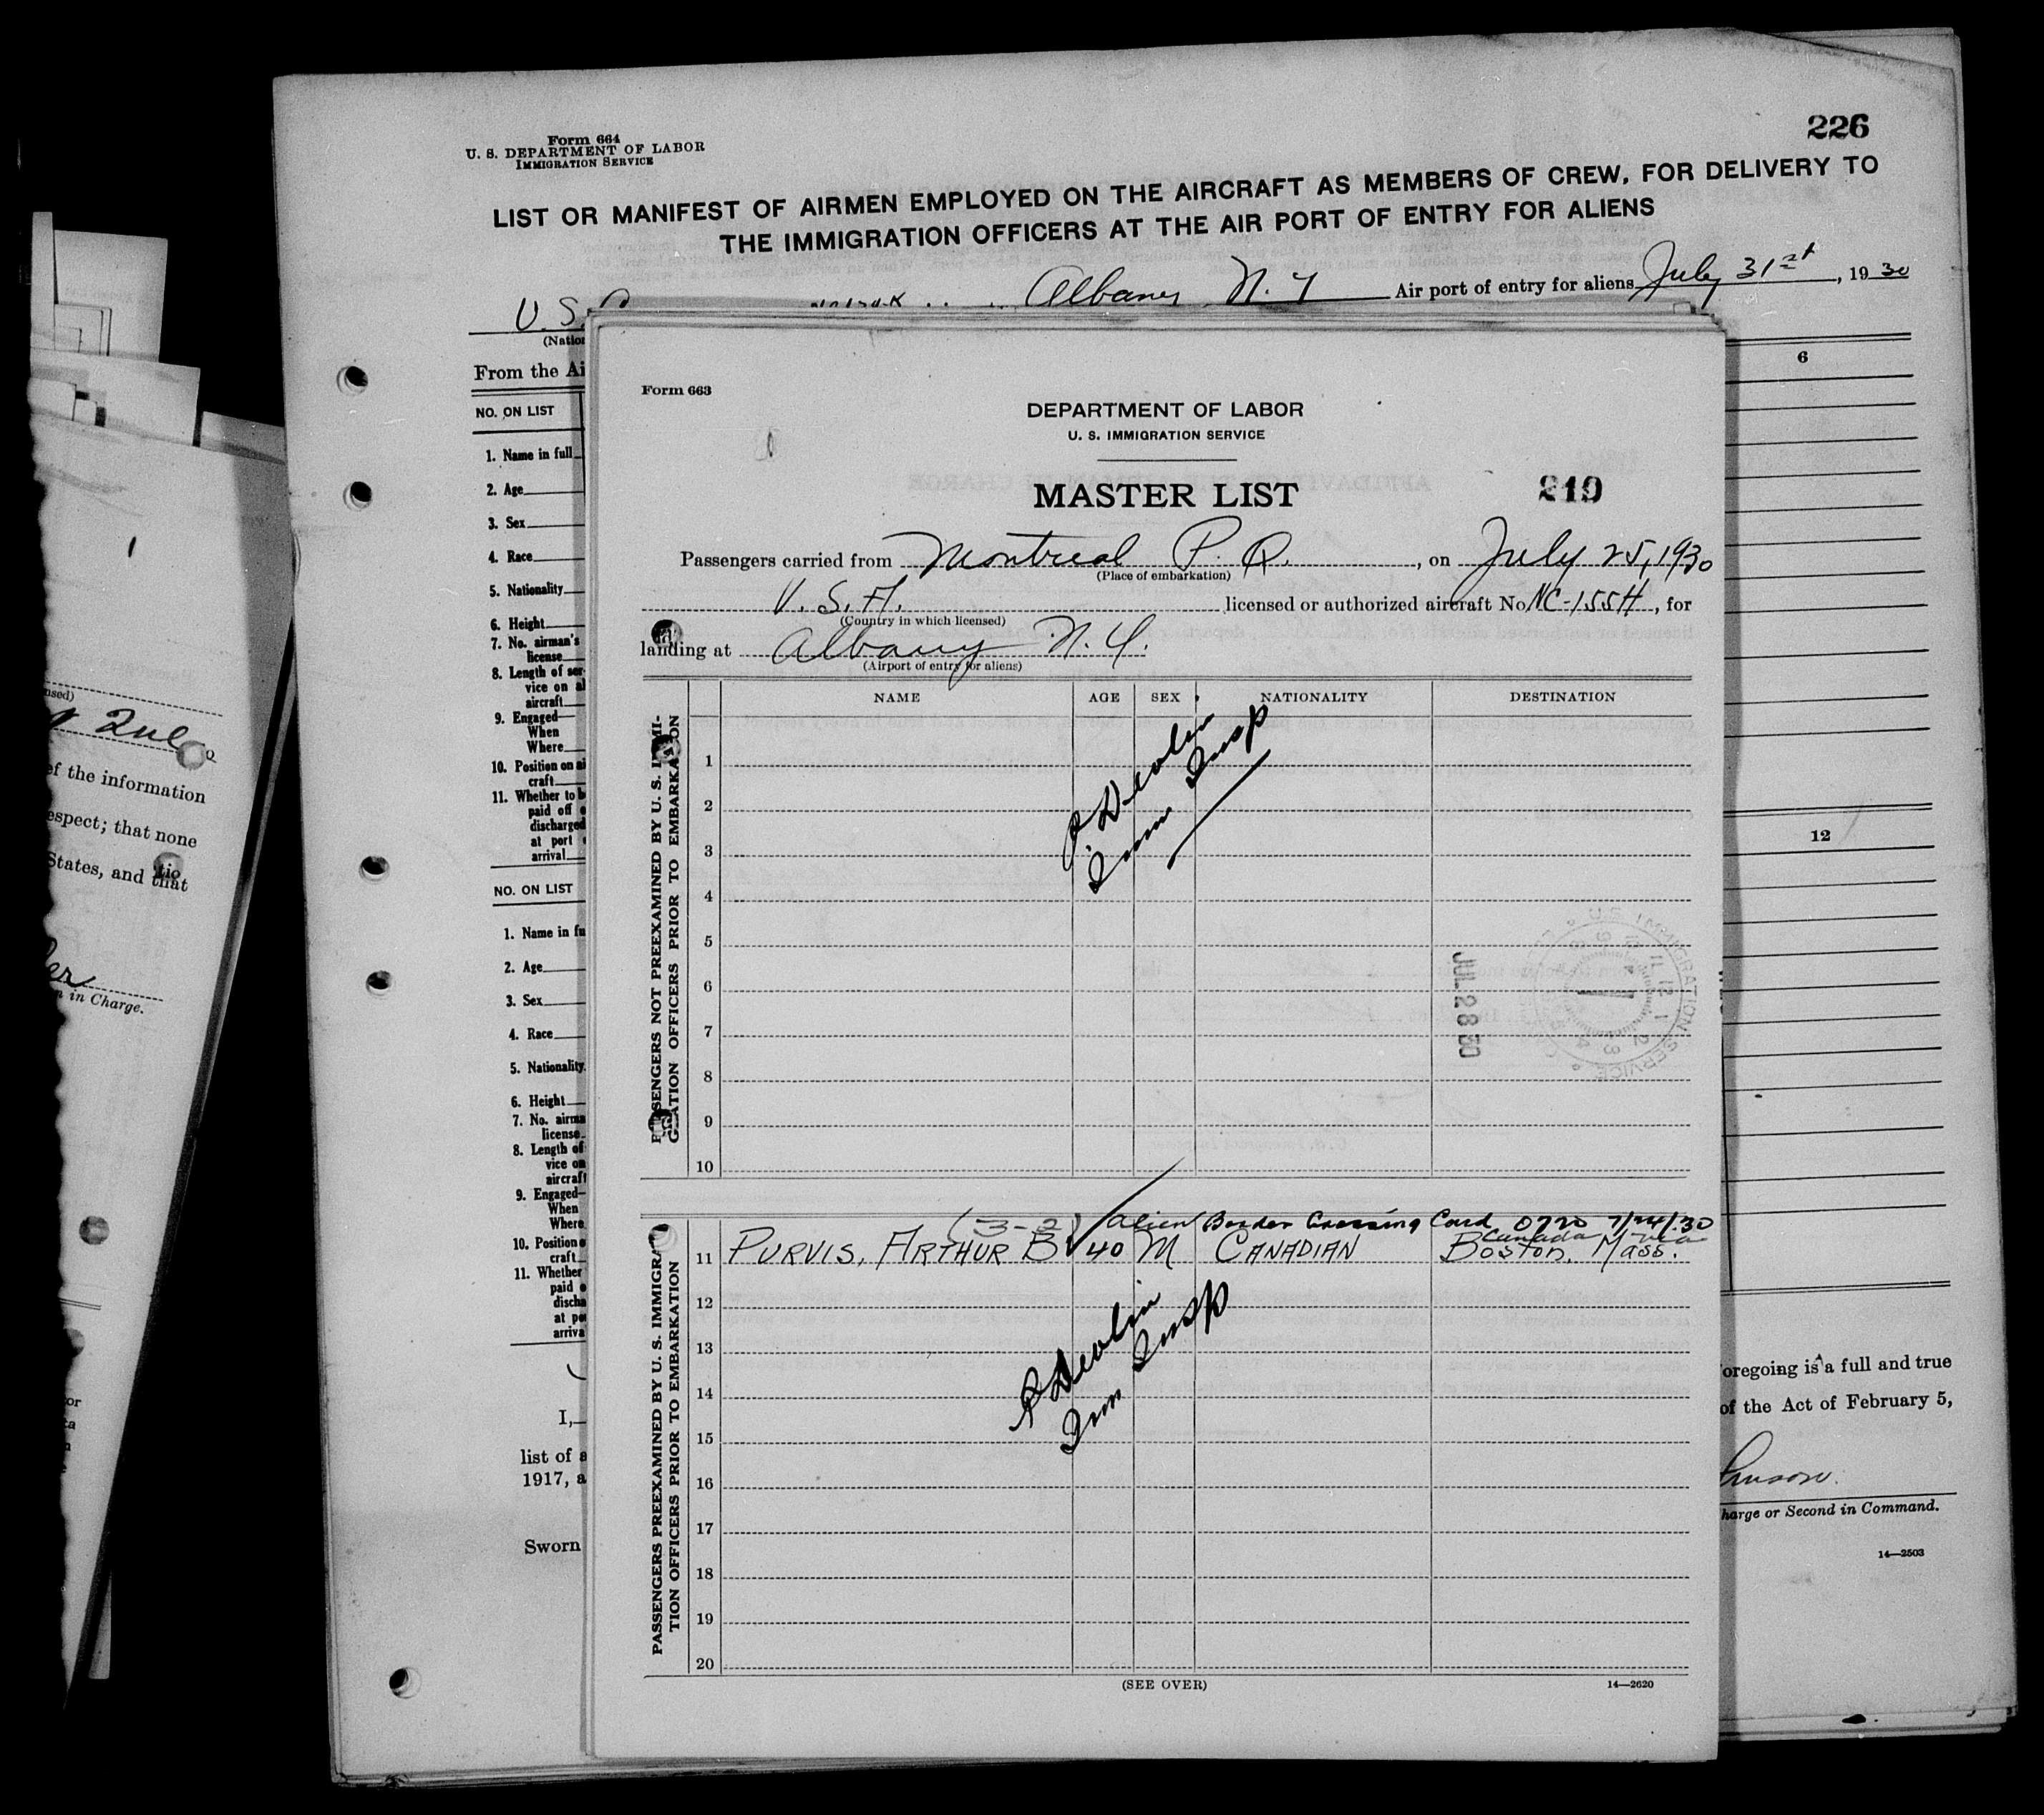 Form 664
U. S. DEPARTMENT OF LABOR
IMMIGRATION SERVICE
226
LIST OR MANIFEST OF AIRMEN EMPLOYED ON THE AIRCRAFT AS MEMBERS OF CREW, FOR DELIVERY TO
THE IMMIGRATION OFFICERS AT THE AIR PORT OF ENTRY FOR ALIENS
U. S. Albany N. Y Air port of entry for aliens July 31st, 1930
(Nation
From the Ai
6
NO. ON LIST
1. Name in full
2. Age
3. Sex
4. Race
5. Nationality
6. Height
7. No. airman's
license
8. Length of ser-
vice on al
aircraft
9. Engaged—
When
Where
10. Position on ai
craft
11. Whether to b
paid off o
discharged
at port
arrival
12
NO. ON LIST
1. Name in fu
2. Age
3. Sex
4. Race
5. Nationality
6. Height
7. No. airma
license
8. Length of
vice on
aircraft
9. Engaged—
When
Where
10. Position o
craft
11. Whether
paid o
discha
at po
arriva
I,
oregoing is a full and true
list of a
of the Act of February 5,
1917, a
Sworn
harge or Second in Command.
14—2503
Form 663
DEPARTMENT OF LABOR
U. S. IMMIGRATION SERVICE
MASTER LIST
219
Passengers carried from Montreal P. Q., on July 25, 1930
(Place of embarkation)
U. S. A. licensed or authorized aircraft No. NC-155H, for
(Country in which licensed)
landing at Albany N. Y.
(Airport of entry for aliens)
NAME AGE SEX NATIONALITY DESTINATION
PASSENGERS NOT PREEXAMINED BY U. S. IMMI-
GRATION OFFICERS PRIOR TO EMBARKATION
1
2
3
4
5
6
7
8
9
10
P. Devlin
Imm Insp
JUL 28 30
U.S. IMMIGRATION SERVICE
PASSENGERS PREEXAMINED BY U. S. IMMIGRA-
TION OFFICERS PRIOR TO EMBARKATION
(3-2) alien Border Crossing Card 0720 7/24/30
Canada via
11 PURVIS, ARTHUR B 40 M CANADIAN BOSTON, MASS.
12
13
14
15
16
17
18
19
20
P Devlin
Imm Insp
(SEE OVER)
14—2620
nsed)
ef the information
espect; that none
States, and that
n in Charge.